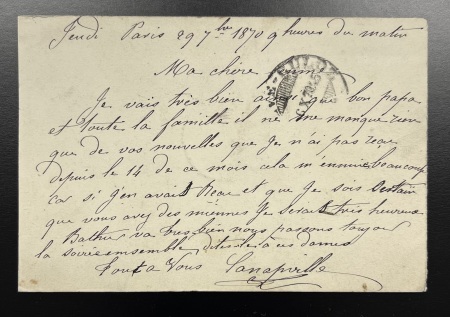 Jeudi Paris 29 7bre 1870 9 heures du matin
Ma chère amie
Je vais très bien ainsi que bon papa
et toute la famille il ne me manque rien
que de vos nouvelles que je n'ai pas reçu
depuis le 14 de ce mois cela m'ennuie beaucoup
car si j'en avait recu et que je sois certain
que vous avez des miennes je serait très heureux
va très bien nous passons toujour
la soirée ensemble dites le à ces dames
Tout a Vous